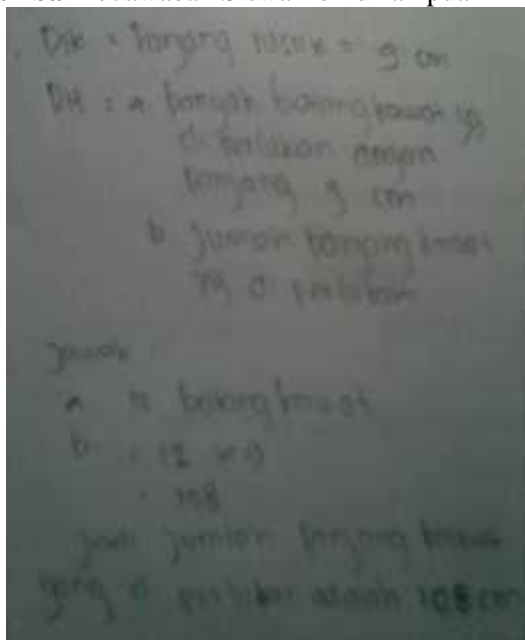 Dik = Panjang rusuk = 9 cm
Dit : a. banyak batang kawat yg
di perlukan dengan
panjang 9 cm
b. jumlah panjang kawat
yg di perlukan
Jawab
a batang kawat
b = 12 x 9
= 108
jadi jumlah panjang kawat
yang di perlukan adalah 108 cm